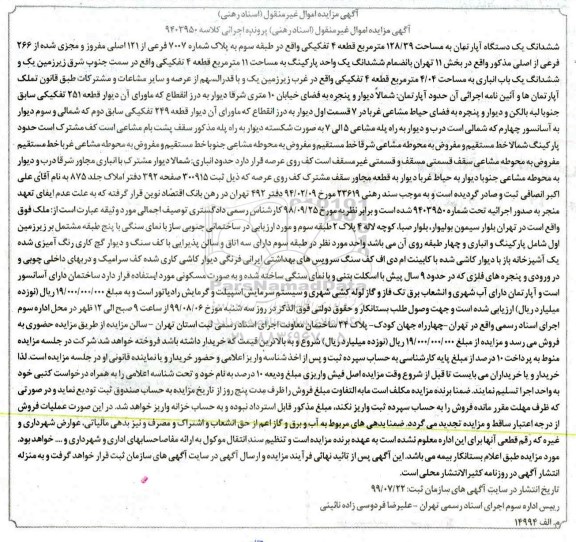 آگهی مزایده اموال غیر منقول (اسناد رهنی)
آگهی مزایده اموال غیرمنقول (اسناد رهنی) پرونده اجرائی کلاسه ۹۴۰۳۹۵۰
ششدانگ یک دستگاه آپارتمان به مساحت ۱۲۸/۳۹ مترمربع قطعه ۴ تفکیکی واقع در طبقه سوم به پلاک شماره ۷۰۰۷ فرعی از ۱۲۱ اصلی مفروز و مجزی شده از ۲۶۶
فرعی از اصلی مذکور واقع در بخش ۱۱ تهران بانضمام ششدانگ یک واحد پارکینگ به مساحت ۱۱ مترمربع قطعه ۴ تفکیکی واقع در سمت جنوب شرق زیرزمین یک و
ششدانگ یک باب انباری به مساحت ۴/۰۴ مترمربع قطعه ۴ تفکیکی واقع در غرب زیرزمین یک و با قدرالسهم از عرصه و سایر مشاعات و مشترکات طبق قانون تملک
آپارتمان ها و آئین نامه اجرائی آن حدود آپارتمان: شمالاً دیوار و پنجره به فضای خیابان ۱۰ متری شرقا دیوار به درز انقطاع که ماورای آن دیوار قطعه ۲۵۱ تفکیکی سابق
جنوبا لبه بالکن و دیوار و پنجره به فضای حیاط مشاعی غربا در ۷ قسمت اول دیوار به درز انقطاع که ماورای آن دیوار قطعه ۲۴۹ تفکیکی سابق دوم که شمالی و سوم دیوار
به آسانسور چهارم که شمالی است درب و دیوار به راه پله مشاعی ۵ الی ۷ به صورت شکسته دیوار به راه پله مذکور سقف پشت بام مشاعی است کف مشترک است حدود
پارکینگ شمالا خط مستقیم و مفروض به محوطه مشاعی شرقا خط مستقیم و مفروض به محوطه مشاعی جنوبا خط مستقیم و مفروض به محوطه مشاعی غربا خط مستقیم
مفروض به محوطه مشاعی سقف قسمتی مسقف و قسمتی غیر مسقف است کف روی عرصه قرار دارد حدود انباری: شمالا دیوار مشترک با انباری مجاور شرقا درب و دیوار
به محوطه مشاعی جنوبا دیوار به حیاط غربا دیوار به قطعه مجاور سقف مشترک کف روی عرصه که ذیل ثبت ۳۰۰۹۱۵ صفحه ۳۹۲ دفتر املاک جلد ۸۷۵ به نام آقای علی
اکبر انصافی ثبت و صادر گردیده است و به موجب سند رهنی ۲۳۶۱۹ مورخ ۹۴/۰۲/۰۹ دفتر ۴۹۲ تهران در رهن بانک اقتصاد نوین قرار گرفته که به علت عدم ایفای تعهد
منجر به صدور اجرائیه تحت شماره ۹۴۰۳۹۵۰ شده است و برابر نظریه مورخ ۹۸/۰۹/۲۵ کارشناس رسمی دادگستری توصیف اجمالی مورد وثیقه عبارت است از: ملک فوق
واقع است در تهران بلوار سیمون بولیوار، بلوار صبا، کوچه لاله ۴ پلاک ۲ طبقه سوم و مورد ارزیابی در ساختمانی جنوبی ساز با نمای سنگی با پنج طبقه مشتمل بر زیرزمین
اول شامل پارکینگ و انباری و چهار طبقه روی آن می باشد واحد مورد نظر در طبقه سوم دارای سه اتاق و سالن پذیرایی با کف سنگ و دیوار گچ کاری رنگ آمیزی شده
یک آشپزخانه باز با دیوار کاشی شده با کابینت ام دی اف کف سنگ سرویس های بهداشتی ایرانی فرنگی دیوار کاشی کاری شده کف سرامیک و دربهای داخلی چوبی و
در ورودی و پنجره های فلزی که در حدود ۹ سال پیش با اسکلت بتنی و با نمای سنگی ساخته شده و به صورت مسکونی مورد استفاده قرار دارد ساختمان دارای آسانسور
است و آپارتمان دارای آب شهری و انشعاب برق تک فاز و گاز لوله کشی شهری و سیستم سرمایش اسپیلت و گرمایش رادیاتور است و به مبلغ ۱۹/۰۰۰/۰۰۰/۰۰۰ ریال (نوزده
میلیارد ریال) ارزیابی شده است و جهت وصول طلب بستانکار و حقوق دولتی فوق الذکر در روز سه شنبه مورخ ۹۹/۰۸/۰۶ از ساعت ۹ صبح الی ۱۲ ظهر در محل اداره سوم
اجرای اسناد رسمی واقع در تهران -چهارراه جهان کودک- پلاک ۲۴ ساختمان معاونت اجرای اسناد رسمی ثبت استان تهران – سالن مزایده از طریق مزایده حضوری به
فروش می رسد و مزایده از مبلغ ۱۹/۰۰۰/۰۰۰/۰۰۰ ریال (نوزده میلیارد ریال) شروع و به بالاترین قیمت که خریدار داشته باشد فروخته خواهد شد شرکت در جلسه مزایده
منوط به پرداخت ۱۰ درصد از مبلغ پایه کارشناسی به حساب سپرده ثبت و پس از اخذ شناسه واریز اعلامی و حضور خریدار و یا نماینده قانونی او در جلسه مزایده است. لذا
خریدار و یا خریداران می بایست تا قبل از شروع وقت مزایده اصل فیش واریزی مبلغ ودیعه ۱۰ درصد به نام خود و تحت شناسه اعلامی را به همراه درخواست کتبی خود
به واحد اجرا تسلیم نمایند. ضمنا برنده مزایده مکلف است مابه التفاوت مبلغ فروش را ظرف مدت پنج روز از تاریخ مزایده به حساب صندوق ثبت تودیع نماید و در صورتی
که ظرف مهلت مقرر مانده فروش را به حساب سپرده ثبت واریز نکند، مبلغ مذکور قابل استرداد نبوده و به حساب خزانه واریز خواهد شد. در این صورت عملیات فروش
از درجه اعتبار ساقط و مزایده تجدید می گردد. ضمنا بدهی های مربوط به آب و برق و گاز اعم از حق انشعاب و اشتراک و مصرف و نیز بدهی مالیاتی، عوارض شهرداری و
غیره که رقم قطعی آنها برای این اداره معلوم نشده است به عهده برنده مزایده است و تنظیم سند انتقال موکول به ارائه مفاصا حسابهای اداری و شهرداری و ... خواهد بود.
مورد مزایده طبق اعلام بستانکار بیمه می باشد. این آگهی پس از تائید نهائی فرآیند مزایده و ارسال آگهی در سایت آگهی های سازمان ثبت قرار خواهد گرفت و به منزله
انتشار آگهی در روزنامه کثیرالانتشار محلی است.
تاریخ انتشار در سایت آگهی های سازمان ثبت: ۹۹/۰۷/۲۲
رییس اداره سوم اجرای اسناد رسمی تهران - علیرضا فردوسی زاده نائینی
م. الف ۱۴۹۹۴